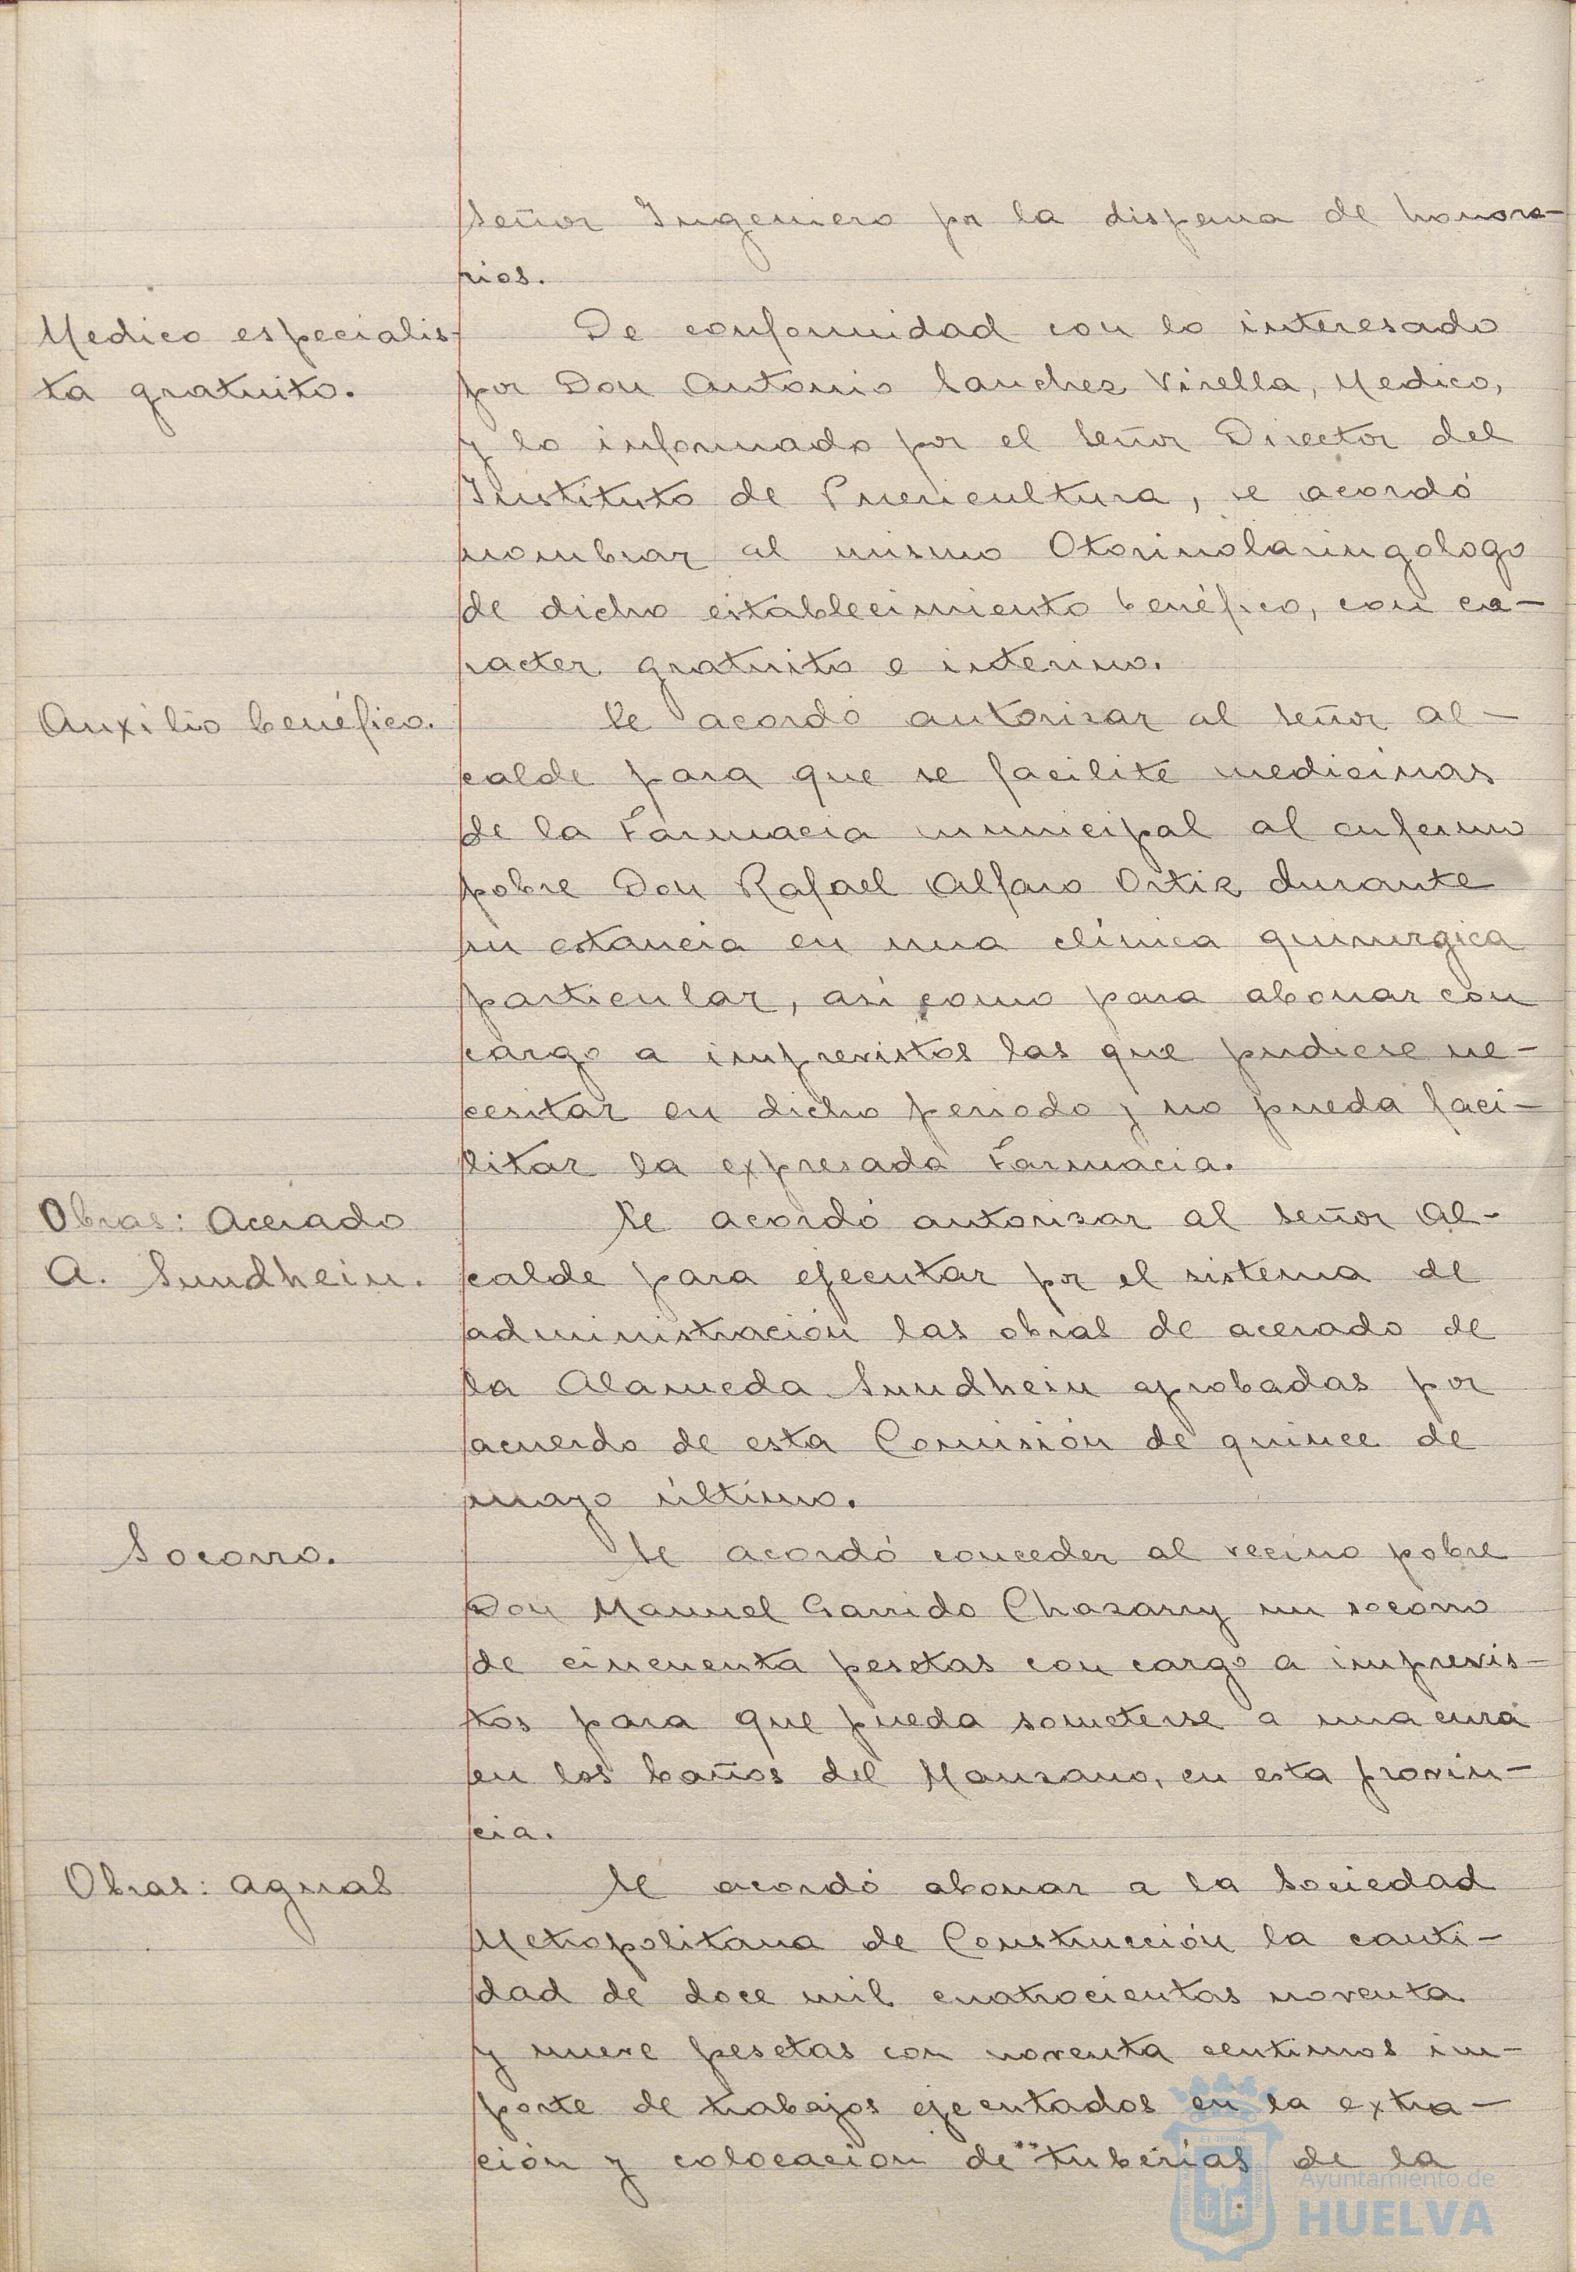 Señor Ingeniero por la dispensa de honora-
rios.
Medico especialis-
ta gratuito.
De conformidad con lo interesado
por Don Antonio Sanchez Virella, Medico,
y lo informado por el Señor Director del
Instituto de Puericultura, se acordó
nombrar al mismo Otorinolaringologo
de dicho establecimiento benéfico, con ca-
racter gratuito e interino.
Auxilio benéfico.
Se acordó autorizar al Señor Al-
calde para que se facilite medicinas
de la Farmacia municipal al enfermo
pobre Don Rafael Alfaro Ortiz durante
su estancia en una clínica quirurgica
particular, asi como para abonar con
cargo a imprevistos las que pudiese ne-
cesitar en dicho periodo y no pueda faci-
litar la expresada Farmacia.
Obras: Acerado
A. Sundhein.
Se acordó autorizar al Señor Al-
calde para ejecutar por el sistema de
administración las obras de acerado de
la Alameda Sundhein aprobadas por
acuerdo de esta Comisión de quince de
mayo último.
Socorro.
Se acordó conceder al vecino pobre
Don Manuel Garrido Chazarry un socorro
de cincuenta pesetas con cargo a imprevis-
tos para que pueda someterse a una cura
en los baños del Manzano, en esta provin-
cia.
Obras: aguas
Se acordó abonar a la Sociedad
Metropolitana de Construcción la canti-
dad de doce mil cuatrocientas noventa
y nueve pesetas con noventa centimos im-
porte de trabajos ejecutados en la extra-
ción y colocacion de tuberías de la
Ayuntamiento de
HUELVA